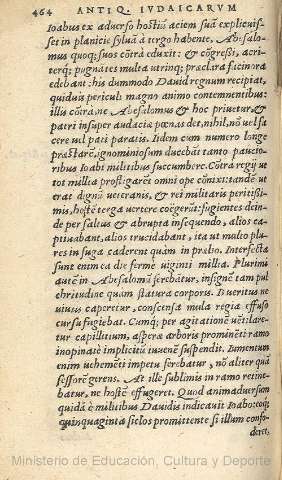 464 ANTIQ. IVDAICARVM
Ioabus ex aduerso hostiũ aciem suã explicuis-
set in planicie syluã à tergo habente. Absalo-
mus quoq; suos cõtrà eduxit: & cõgreßi, acri-
terq; pugnãtes multa utrinq; præclara facinora
edebant: his dummodo Dauid regnum recipiat,
quiduis periculi magno animo contemnentibus:
illis cõtrà ne Absalomus & hoc priuetur, &
patri insuper audaciæ pœnas det, nihil nõ uel fa
cere uel pati paratis. Iidem cum numero longe
præstãrẽt, ignominiosum ducebãt tanto paucio-
ribus Ioabi militibus succumbere. Cõtrà regij ut
tot millia profligarẽt omni ope cõnixi: tandẽ ut
erat dignũ ueteranis, & rei militaris peritißi-
mis, hostẽ terga uertere coëgerũt: fugientes dein-
de per saltus & abrupta insequendo, alios ca-
ptiuabant, alios trucidabant, ita ut multo plu-
res in fuga caderent quàm in prælio. Interfecta
sunt enim ea die ferme uiginti millia. Plurimi
autẽ in Absalomũ ferebãtur, insignẽ tam pul
chritudine quàm statura corporis. Is ueritus ne
uiuus caperetur, conscensa mula regia effuso
cursu fugiebat. Cumq; per agitationẽ uẽtilare-
tur capillitium, aspera arboris prominẽti ramo
inopinatè implicitũ iuuenẽ suspendit. Iumentum
enim uehemẽti impetu ferebatur, nõ aliter quã
seßorẽ gerens. At ille sublimis in ramo retine-
batur, ne hostẽ effugeret. Quod animaduersum
quidã è militibus Dauidis indicauit Ioabo: eoq;
quinquaginta siclos promittente si illum confo-
deret,
Ministerio de Educación, Cultura y Deporte